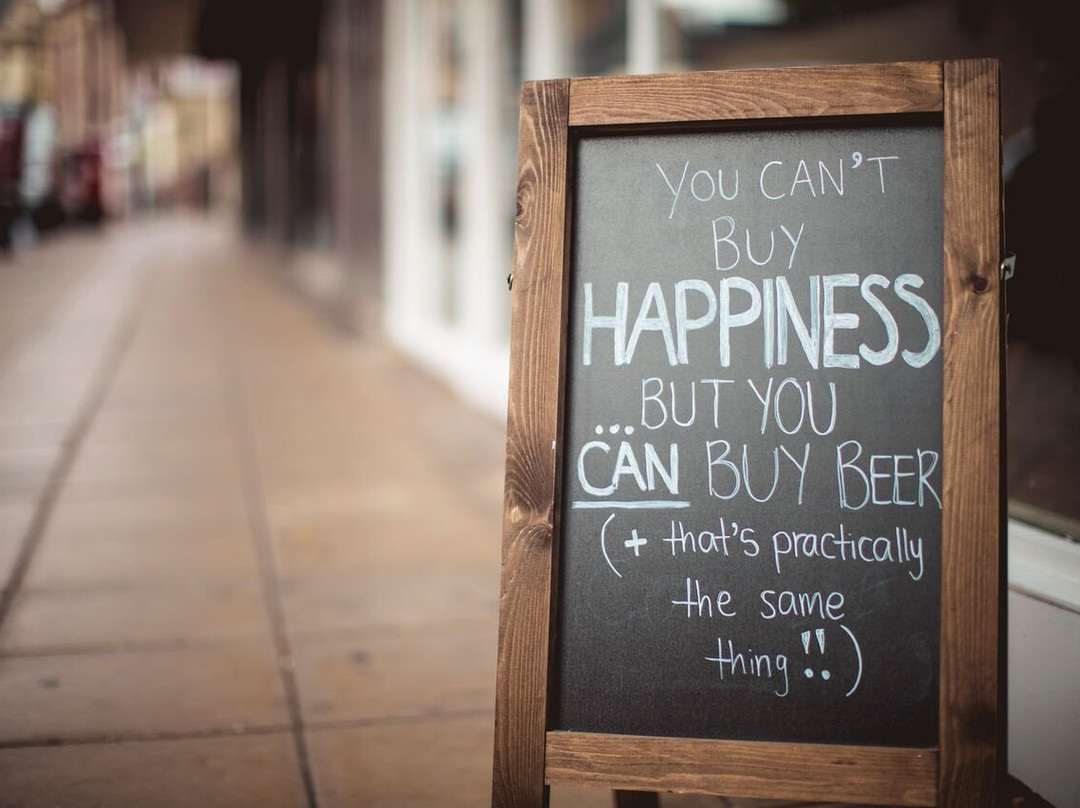 YOU CAN'T
BUY
HAPPINESS
BUT YOU
...
CAN BUY BEER
(+ that's practically
the same
thing!!)